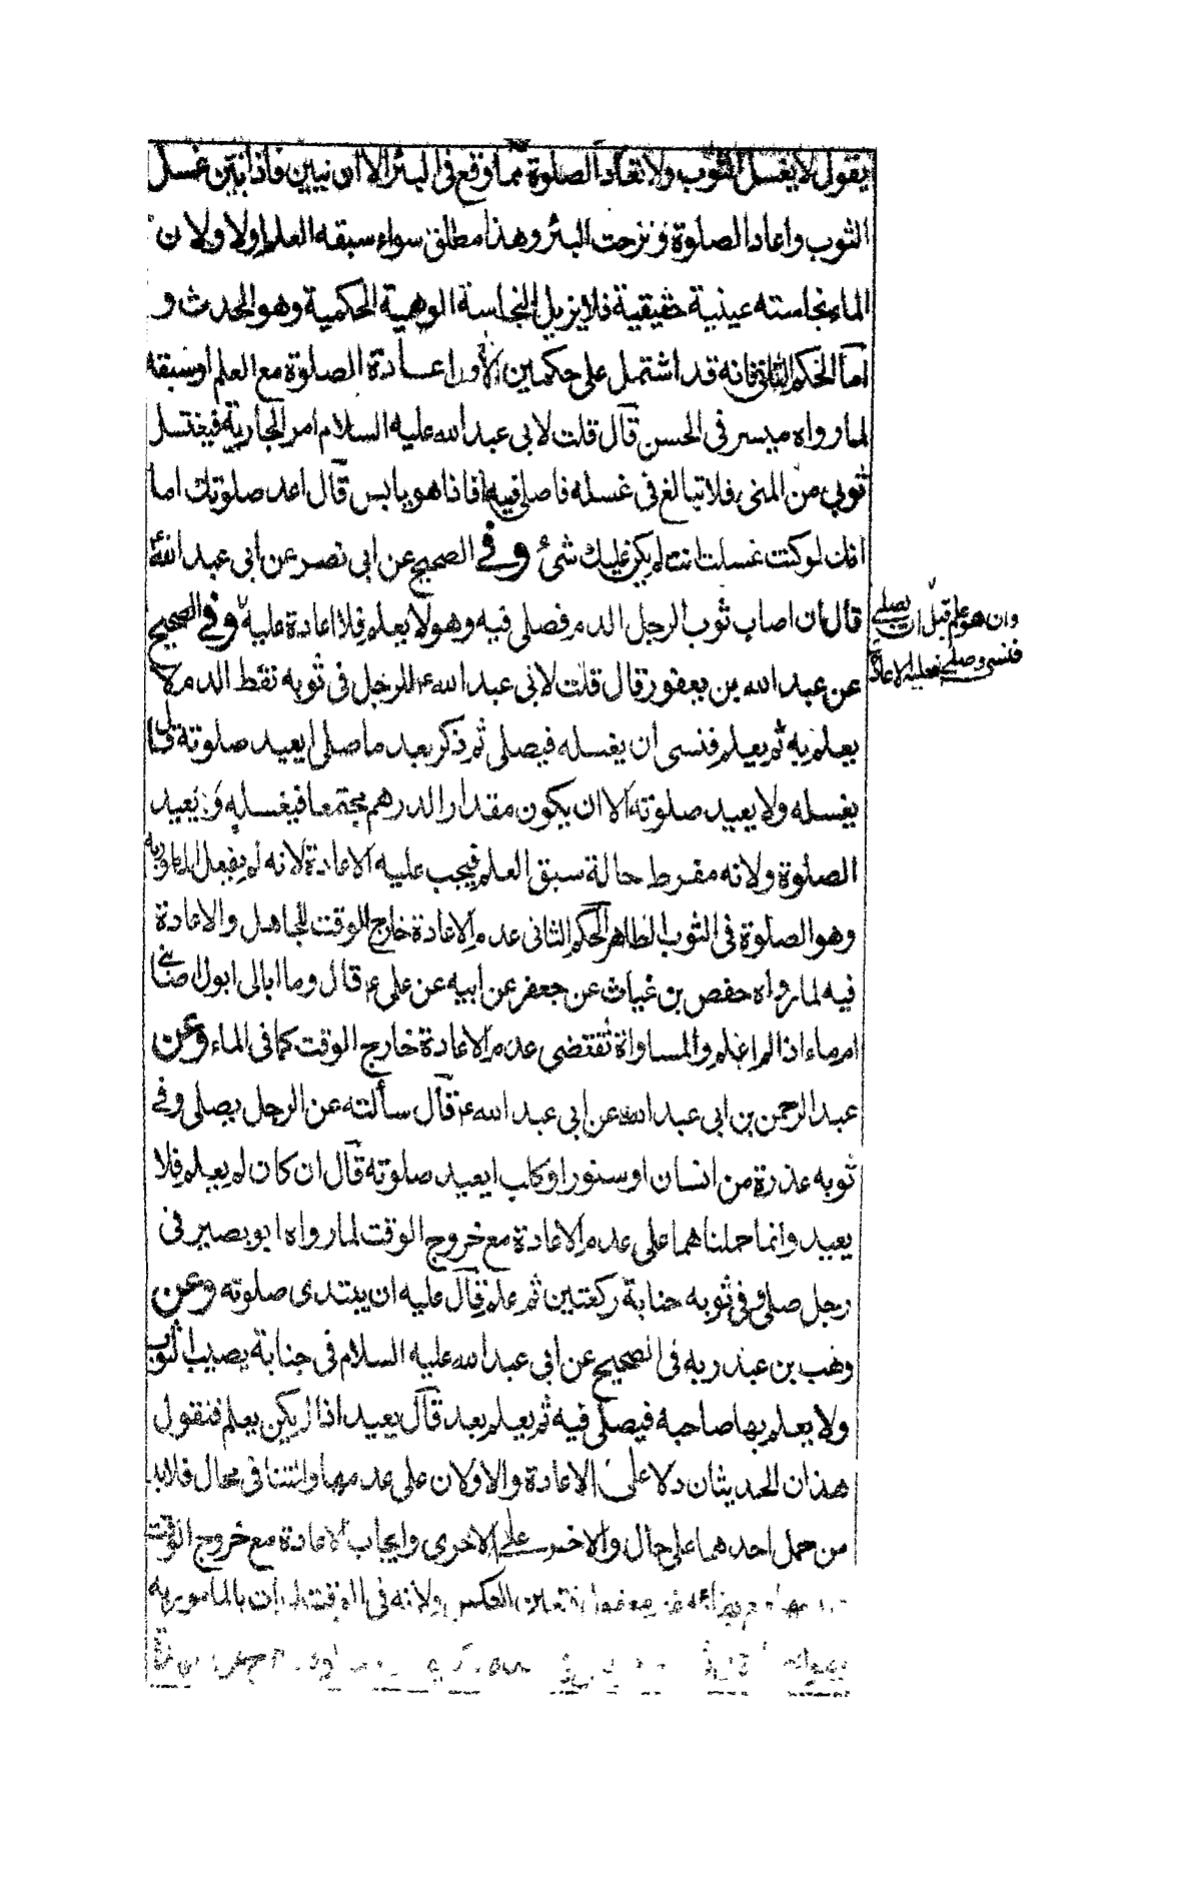 يقول لا يغسل الثوب ولا تعاد الصلوة مما وقع فى البئر الا ان تبين فاذا نتن غسل
الثوب واعاد الصلوة ونزحت البئر وهذا مطلق سواء سبقه العلم اولا ولان
الماء نجاسته عينية حقيقية فلا يزيل النجاسة الوهمية الحكمية وهو الحدث و
اما الحكم الثانى فانه قد اشتمل على حكمين الاول اعادة الصلوة مع العلم او سبقه
لما رواه ميسر فى الحسن قال قلت لابى عبد الله عليه السلام امر الجارية فيغتسل
ثوبى من المنى فلا تبالغ فى غسله فاصلى فيه فاذا هو يابس قال اعد صلوتك اما
انك لو كنت غسلت انت لم يكن عليك شئ وفى الصحيح عن ابى بصير عن ابى عبد الله ع
قال ان اصاب ثوب الرجل الدم فصلى فيه وهو لا يعلم فلا اعادة عليه وفى الصحيح
وان هو علم قبل ان يصلى
فنسى وصلى فعليه الاعادة
عن عبد الله بن يعفور قال قلت لابى عبد الله ع الرجل فى ثوبه نقط الدم لا
يعلم به ثم يعلم فنسى ان يغسله فيصلى ثم ذكر بعد ما صلى ايعيد صلوته قال
يغسله ولا يعيد صلوته الا ان يكون مقدار الدرهم مجتمعا فيغسله ويعيد
الصلوة ولانه مفرط حالة سبق العلم فيجب عليه الاعادة لانه لم يفعل المامور به
وهو الصلوة فى الثوب الطاهر الحكم الثانى عدم الاعادة خارج الوقت للجاهل والاعادة
فيه لما رواه حفص بن غياث عن جعفر عن ابيه عن على ع قال وما ابالى ابول اصابنى
ام ماء اذا لم اعلم والمساواة تقتضى عدم الاعادة خارج الوقت كما فى الماء وعن
عبد الرحمن بن ابى عبد الله عن ابى عبد الله ع قال سألته عن الرجل يصلى وفى
ثوبه عذرة من انسان او سنور او كلب ايعيد صلوته قال ان كان لم يعلم فلا
يعيد وانما حملناهما على عدم الاعادة مع خروج الوقت لما رواه ابو بصير فى
رجل صلى وفى ثوبه جنابة ركعتين ثم علم قال عليه ان يبتدى صلوته وعن
وهب بن عبد ربه فى الصحيح عن ابى عبد الله عليه السلام فى جنابة يصيب الثوب
ولا يعلم بها صاحبه فيصلى فيه ثم يعلم بعد قال يعيد اذا لم يكن يعلم فنقول
هذان الحديثان دلا على الاعادة والاولان على عدمها والتنافى محال فلابد
من حمل احدهما على حال والاخر على الاخرى وايجاب الاعادة مع خروج الوقت
العكس ولانه فى الوقت بالمامور به